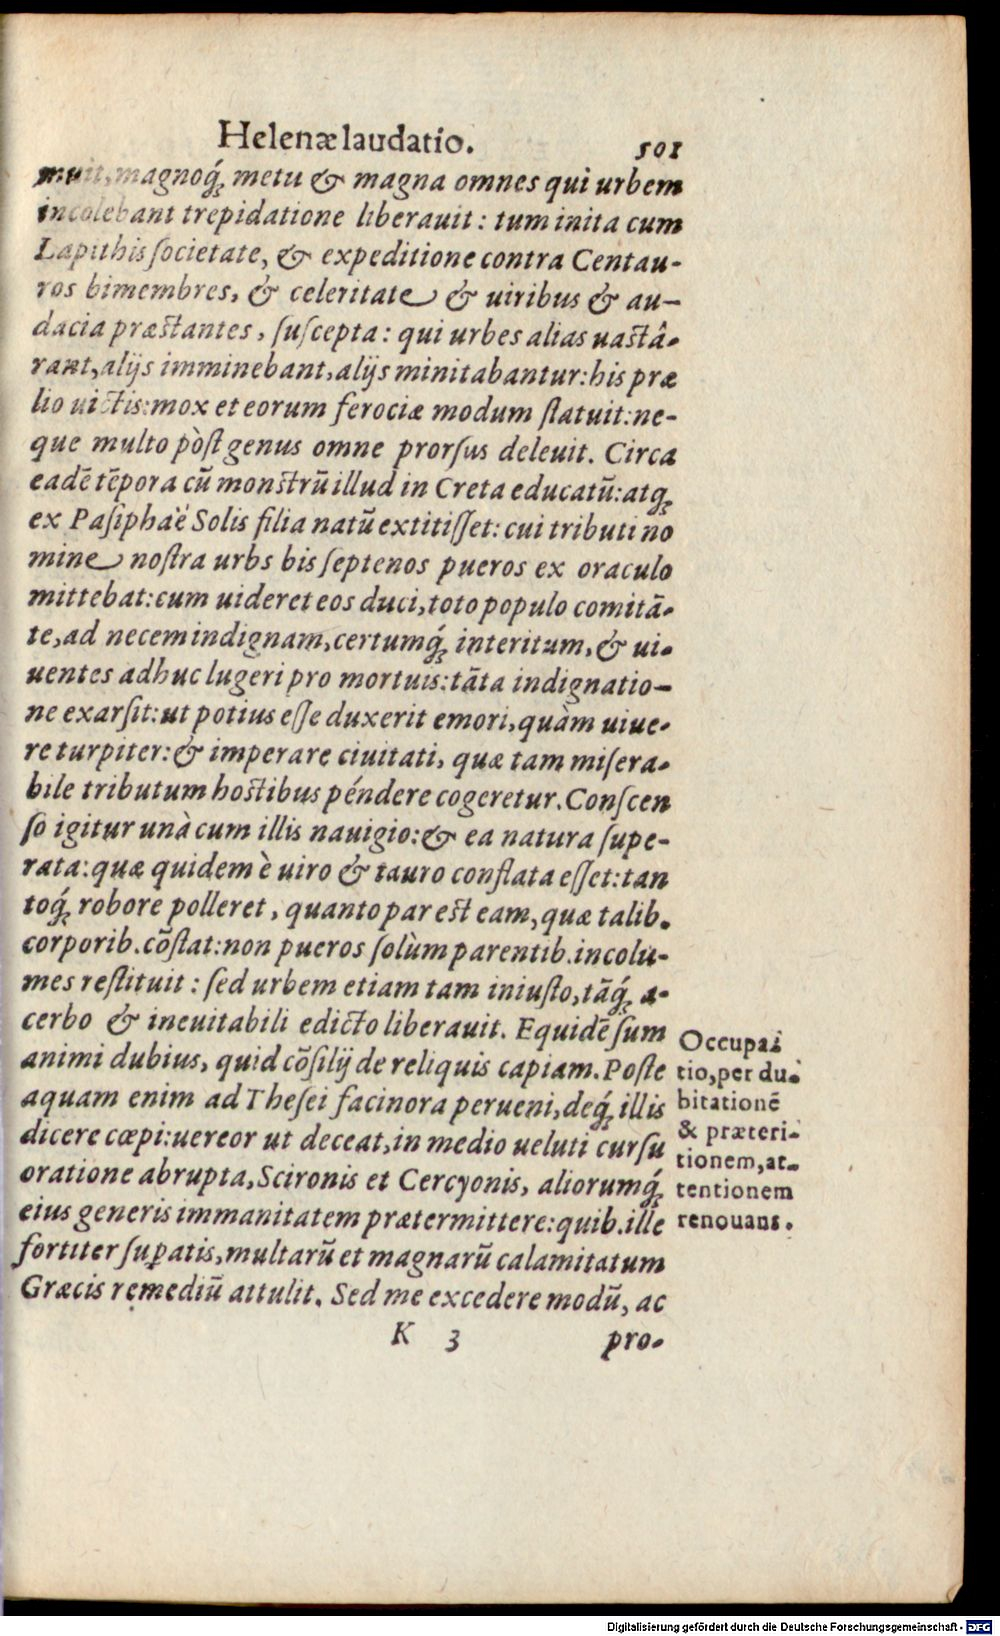 Helenæ laudatio. 501
muit, magnoq́; metu & magna omnes qui urbem
incolebant trepidatione liberauit: tum inita cum
Lapithis societate, & expeditione contra Centau-
ros bimembres, & celeritate & uiribus & au-
dacia præstantes, suscepta: qui urbes alias uastâ-
rant, alijs imminebant, alijs minitabantur: his præ
lio uictis: mox et eorum ferociæ modum statuit: ne-
que multo pòst genus omne prorsus deleuit. Circa
eadẽ tẽpora cũ monstrũ illud in Creta educatũ: atq;
ex Pasiphaë Solis filia natũ extitisset: cui tributi no
mine nostra urbs bis septenos pueros ex oraculo
mittebat: cum uideret eos duci, toto populo comitã-
te, ad necem indignam, certumq́; interitum, & ui-
uentes adhuc lugeri pro mortuis: tãta indignatio-
ne exarsit: ut potius esse duxerit emori, quàm uiue-
re turpiter: & imperare ciuitati, quæ tam misera-
bile tributum hostibus péndere cogeretur. Conscen
so igitur unà cum illis nauigio: & ea natura supe-
rata: quæ quidem è uiro & tauro conflata esset: tan
toq́; robore polleret, quanto par est eam, quæ talib.
corporib. cõstat: non pueros solùm parentib. incolu-
mes restituit: sed urbem etiam tam iniusto, tãq́; a-
cerbo & ineuitabili edicto liberauit. Equidẽ sum
animi dubius, quid cõsilij de reliquis capiam. Poste
aquam enim ad Thesei facinora perueni, deq́; illis
dicere cœpi: uereor ut deceat, in medio ueluti cursu
oratione abrupta, Scironis et Cercyonis, aliorumq́;
eius generis immanitatem prætermittere: quib. ille
fortiter suꝑatis, multarũ et magnarũ calamitatum
Græcis remediũ attulit. Sed me excedere modũ, ac
K 3 pro-
Occupai
tio, per du-
bitationẽ
& præteri-
tionem, at-
tentionem
renouans.
Digitalisierung gefördert durch die Deutsche Forschungsgemeinschaft - DFG